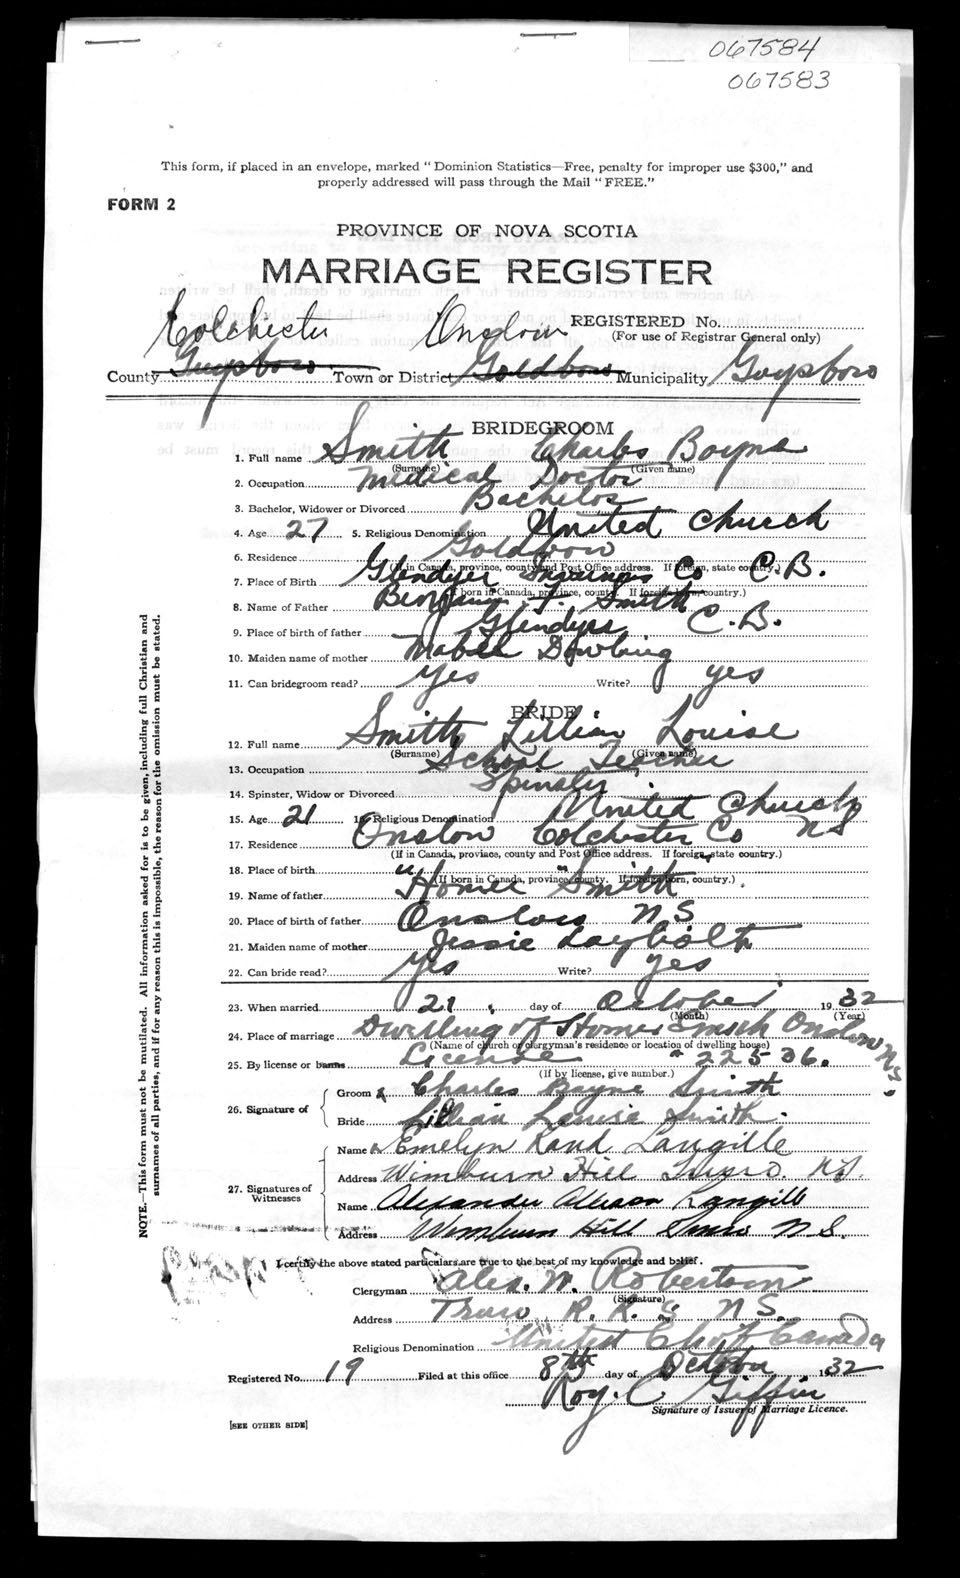 067584
067583
This form, if placed in an envelope, marked "Dominion Statistics—Free, penalty for improper use $300," and
properly addressed will pass through the Mail "FREE."
FORM 2
PROVINCE OF NOVA SCOTIA
MARRIAGE REGISTER
Colchester Onslow REGISTERED No.
(For use of Registrar General only)
County Guysboro Town or District Goldboro Municipality Guysboro
BRIDEGROOM
1. Full name Smith Charles Bayne
(Surname) (Given name)
2. Occupation Medical Doctor
3. Bachelor, Widower or Divorced Bachelor
4. Age 27 5. Religious Denomination United Church
6. Residence Goldboro
(If in Canada, province, county and Post Office address. If foreign, state country.)
7. Place of Birth Glendyer Inverness Co C.B.
(If born in Canada, province, county. If foreign born, country.)
8. Name of Father Benjamin F. Smith
9. Place of birth of father Glendyer C.B.
10. Maiden name of mother Mabel Dowling
11. Can bridegroom read? Yes Write? yes
BRIDE
12. Full name Smith Lillian Louise
(Surname) (Given name)
13. Occupation School Teacher
14. Spinster, Widow or Divorced Spinster
15. Age 21 16. Religious Denomination United Church
17. Residence Onslow Colchester Co NS
(If in Canada, province, county and Post Office address. If foreign, state country.)
18. Place of birth " "
(If born in Canada, province, county. If foreign born, country.)
19. Name of father Homer Smith
20. Place of birth of father Onslow NS
21. Maiden name of mother Jessie Laybolt
22. Can bride read? Yes Write? yes
23. When married 21 day of October 1932
(Month) (Year)
24. Place of marriage Dwelling of Homer Smith Onslow N.S.
(Name of church or clergyman's residence or location of dwelling house)
25. By license or banns License " 22536.
(If by license, give number.)
26. Signature of Groom Charles Bayne Smith
Bride Lillian Louise Smith
27. Signatures of Witnesses Name Emelyn Rand Langille
Address Wimburn Hill Truro N.S.
Name Alexander Allison Langille
Address Wimburn Hill Truro N.S.
I certify the above stated particulars are true to the best of my knowledge and belief.
Clergyman Alex. W. Robertson
(Signature)
Address Truro R.R. 5 N.S.
Religious Denomination United Ch of Canada
Registered No. 19 Filed at this office 8th day of October 1932
Roy C Giffin
Signature of Issuer of Marriage Licence.
[SEE OTHER SIDE]
NOTE.—This form must not be mutilated. All information asked for is to be given, including full Christian and
surnames of all parties, and if for any reason this is impossible, the reason for the omission must be stated.